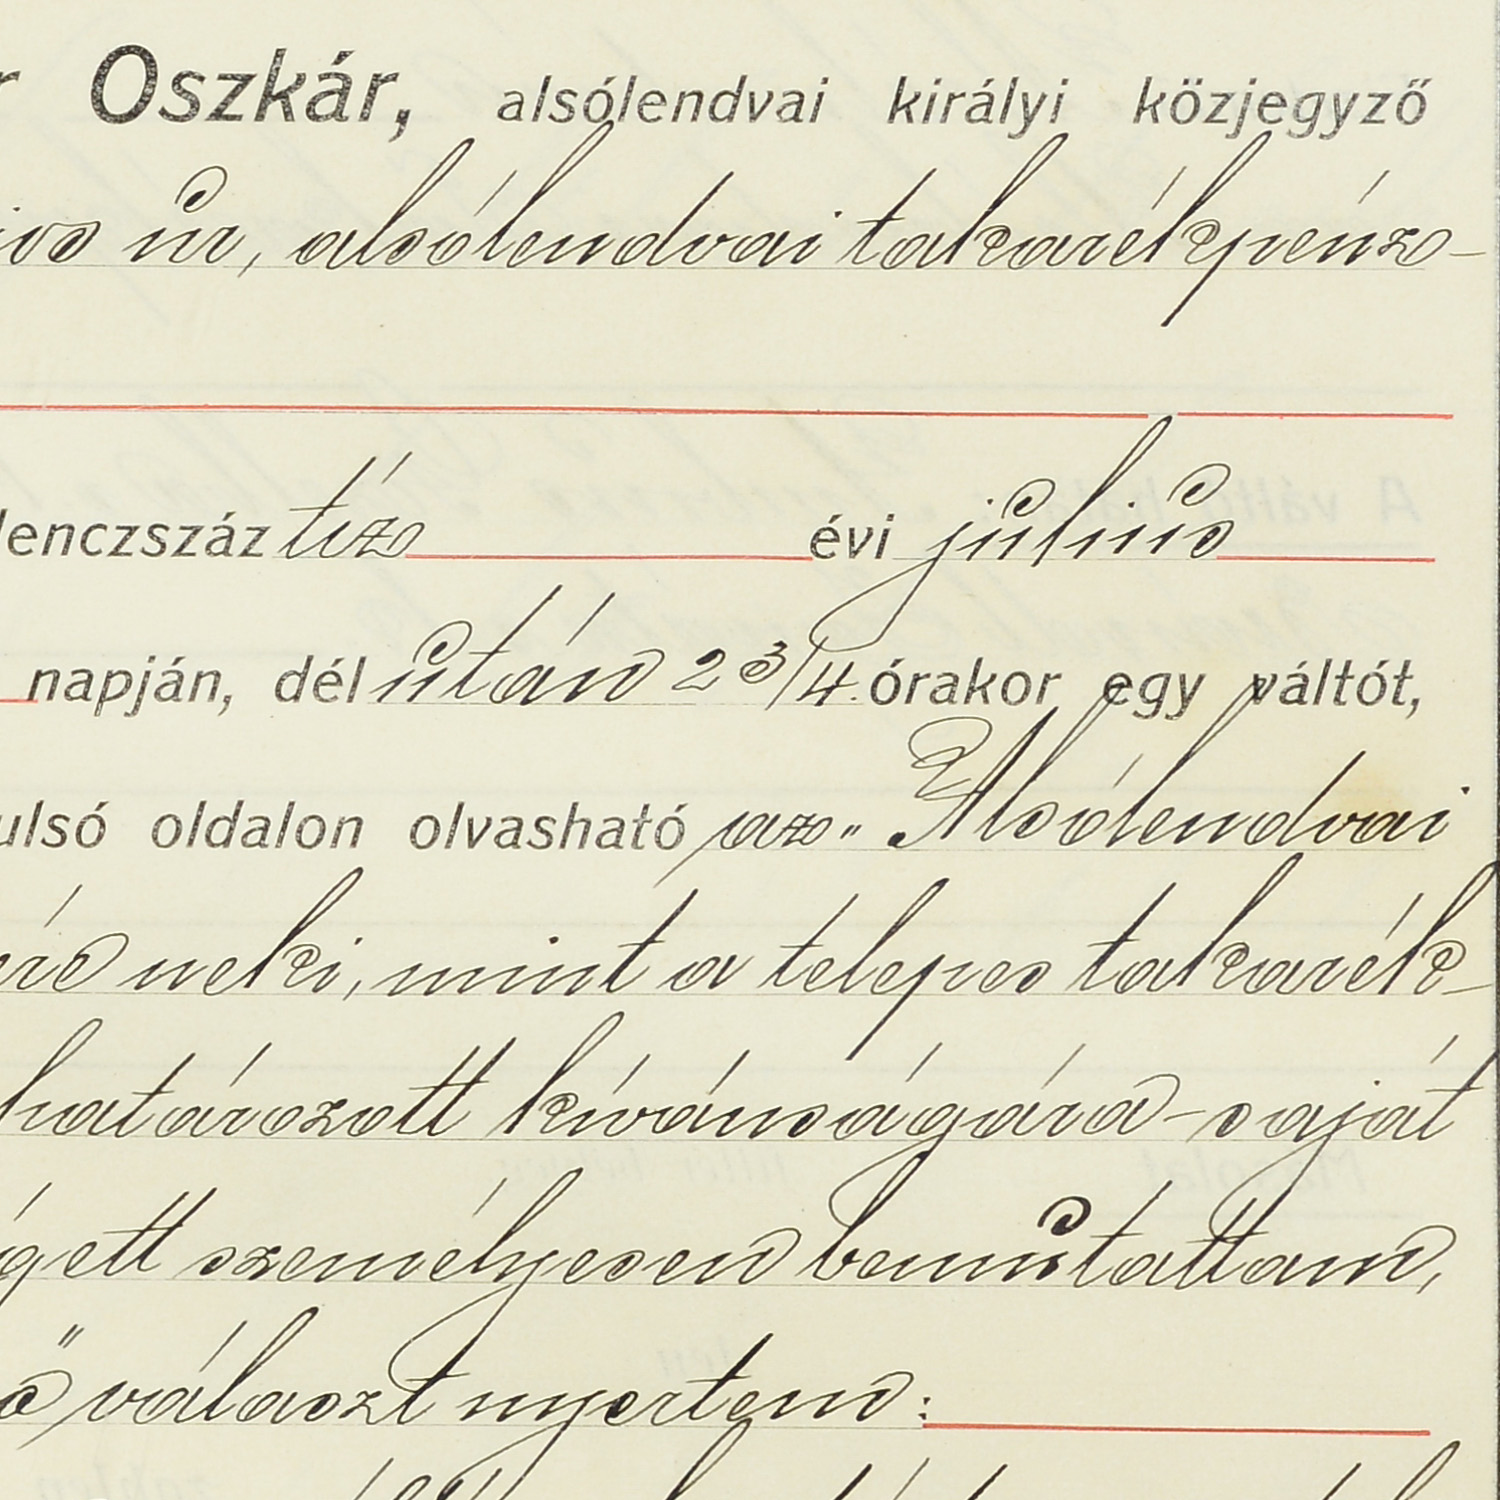 Oszkár, alsólendvai királyi közjegyző
úr, alsólendvai takarékpénz-
lenczszáz tíz évi július
napján, dél után 2 3/4 órakor egy váltót,
ulsó oldalon olvasható az „Alsólendvai
neki, mint a telepes takarék-
határozott kívánságára - saját
gett személyesen bemutattam,
választ nyertem: